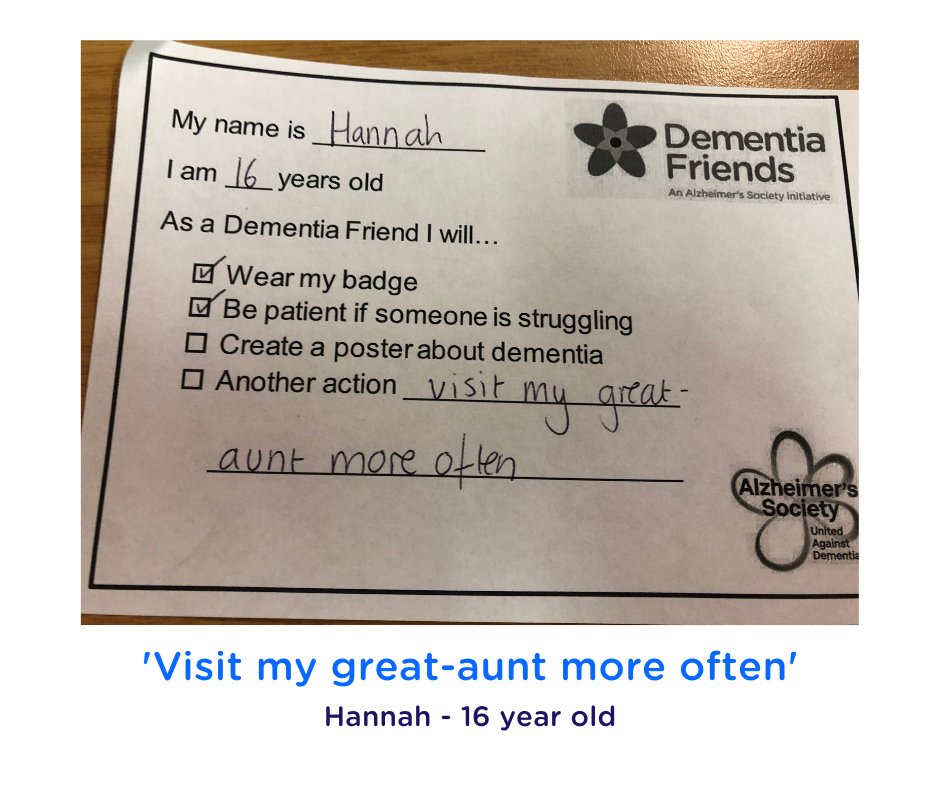 My name is Hannah
Dementia
Friends
An Alzheimer's Society initiative
I am 16 years old
As a Dementia Friend I will...
Wear my badge
Be patient if someone is struggling
Create a poster about dementia
Another action visit my great-
aunt more often
Alzheimer's
Society
United
Against
Dementia
'Visit my great-aunt more often'
Hannah - 16 year old